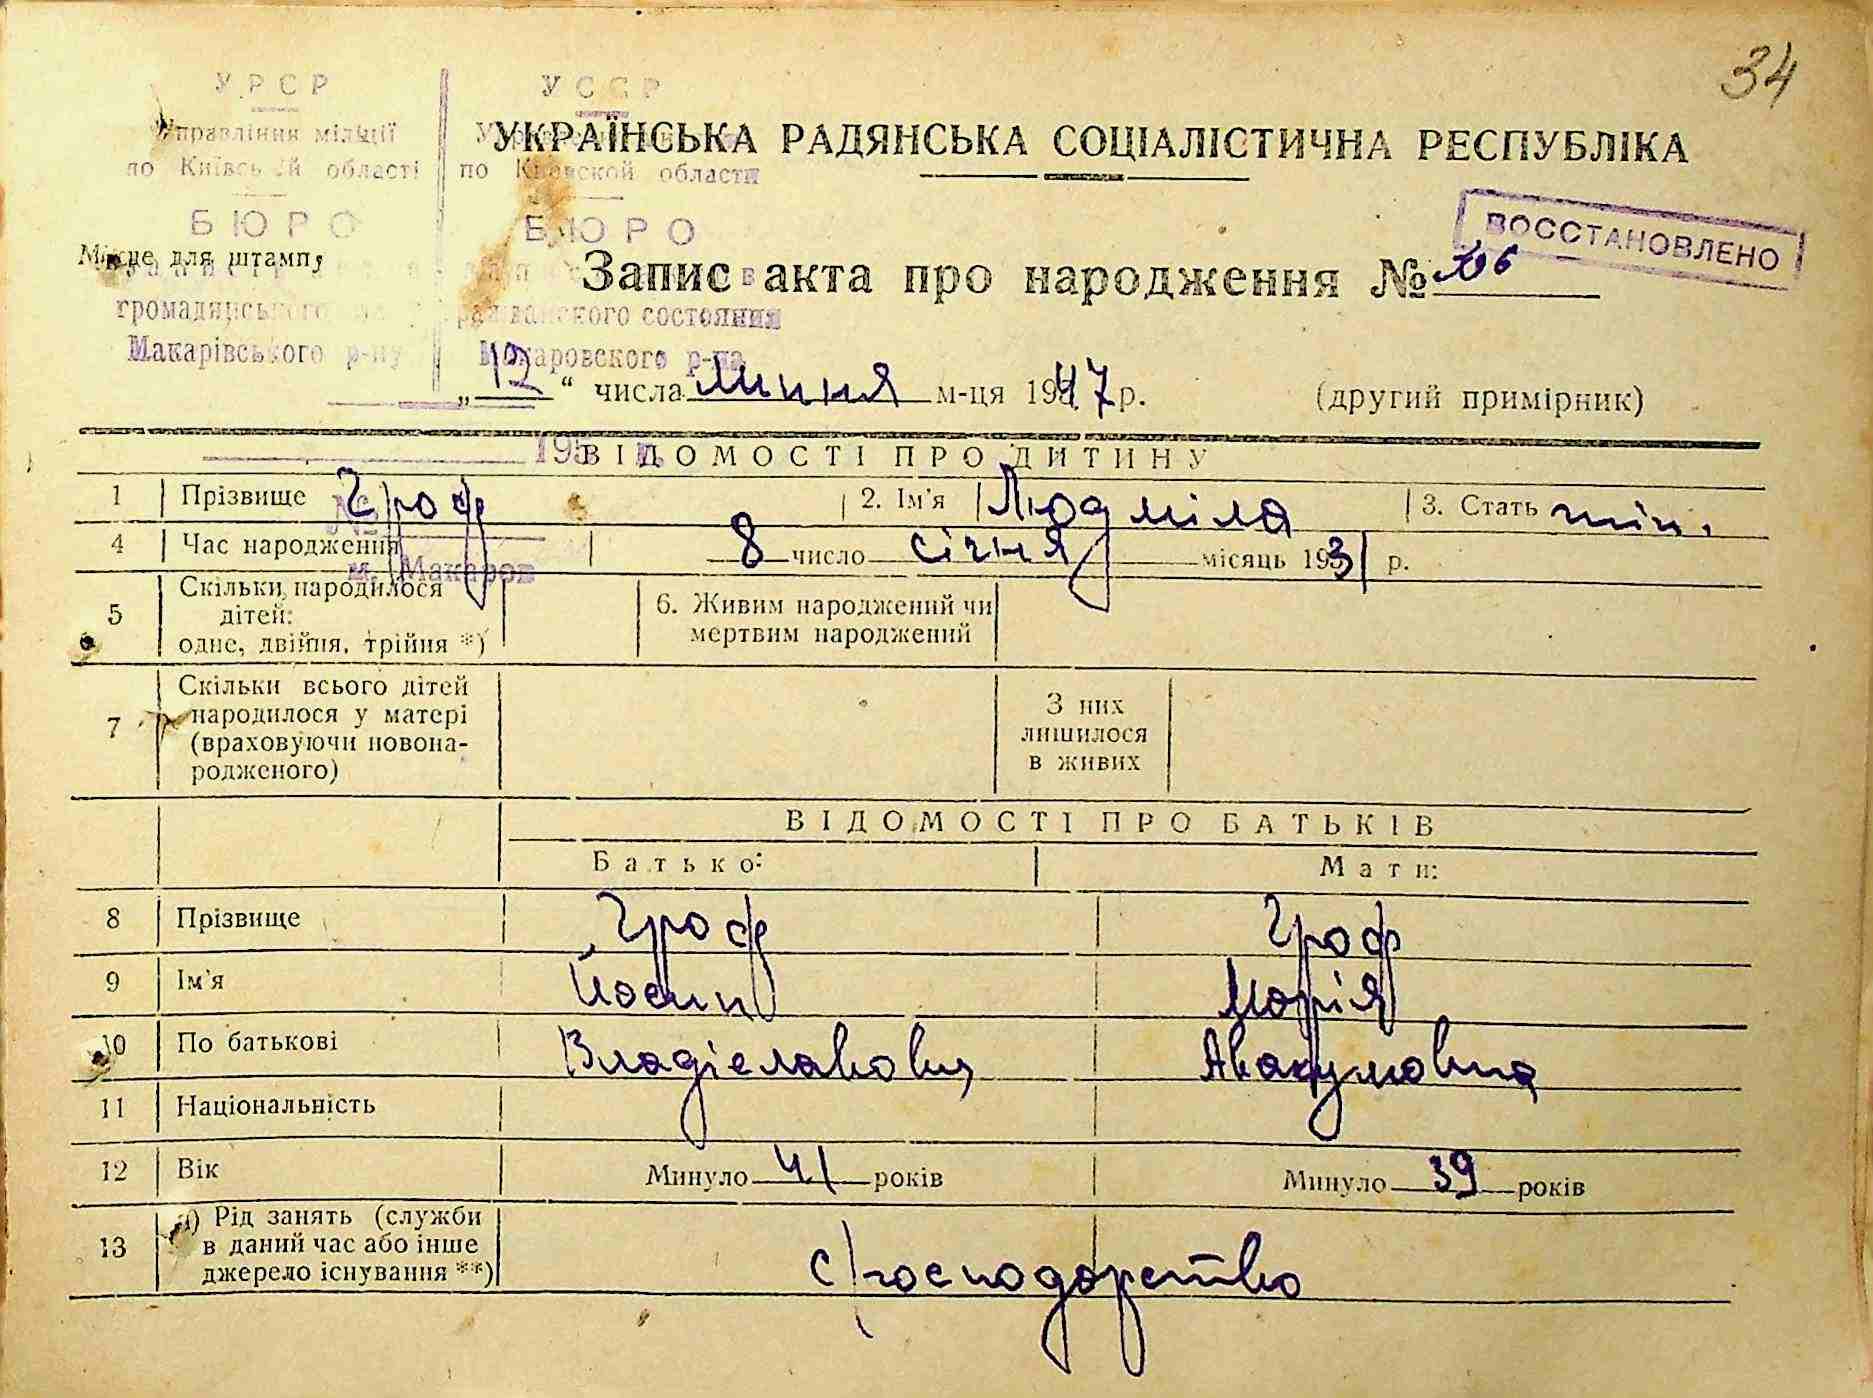 34
УРСР УССР
Управління міліції
по Київській області по Киевской области
УКРАЇНСЬКА РАДЯНСЬКА СОЦІАЛІСТИЧНА РЕСПУБЛІКА
БЮРО БЮРО
ВОССТАНОВЛЕНО
Місце для штампу
Запис акта про народження №
громадянського состояния
Макарівського р-ну Макаровского р-на
„12“ числа липня м-ця 1947 р. (другий примірник)
195
ВІДОМОСТІ ПРО ДИТИНУ
1 Прізвище Гроф 2. Ім'я Людміла 3. Стать жін.
№
4 Час народження 8 число січня місяць 1931 р.
м. Макаров
5 Скільки народилося дітей: одне, двійня, трійня *) 6. Живим народжений чи мертвим народжений
7 Скільки всього дітей народилося у матері (враховуючи новона-родженого) З них лишилося в живих
ВІДОМОСТІ ПРО БАТЬКІВ
Батько: Мати:
8 Прізвище Гроф Гроф
9 Ім'я Йосип Марія
10 По батькові Владіславович Авакумовна
11 Національність
12 Вік Минуло 41 років Минуло 39 років
13 а) Рід занять (служби в даний час або інше джерело існування **) с/господарство